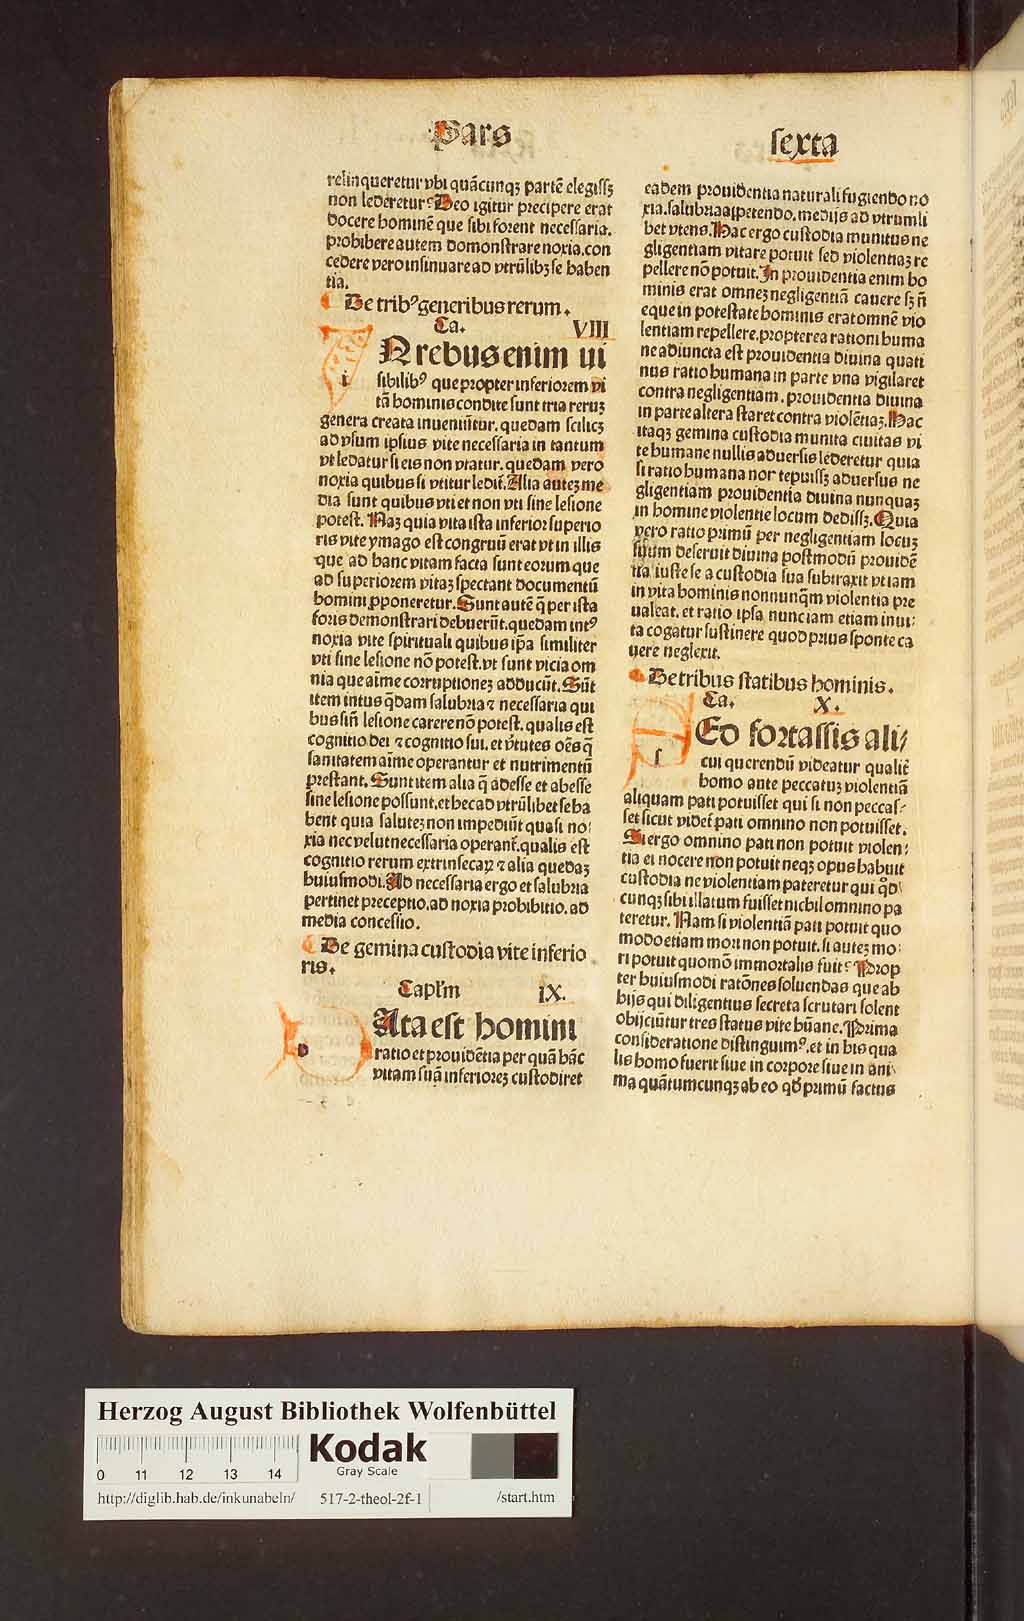 Pars
relinqueretur vbi quācunqꝫ partē elegissꝫ
non lederetur? Deo igitur precipere erat
docere hominē que sibi forent necessaria.
prohibere autem domonstrare noxia. con
cedere vero insinuare ad vtrūlibꝫ se haben
tia.
De tribꝰ generibus rerum.
Ca. VIII
i N rebus enim ui
sibilibꝰ que propter inferiorem vi
tā hominis condite sunt tria reruꝫ
genera creata inueniūtur. quedam scilicꝫ
ad vsum ipsius vite necessaria in tantum
vt ledatur si eis non vtatur. quedam vero
noxia quibus si vtitur ledit̄. Alia auteꝫ me
dia sunt quibus vti et non vti sine lesione
potest. Naꝫ quia vita ista inferior superio
ris vite ymago est congruū erat vt in illis
que ad hanc vitam facta sunt eorum que
ad superiorem vitaꝫ spectant documentū
homini ꝓponeretur. Sunt autē q̄ per ista
foris demonstrari debuerūt. quedam intꝰ
noxia vite spirituali quibus ip̄a similiter
vti sine lesione nō potest. vt sunt vicia om
nia que aīme corruptioneꝫ adducūt. Sūt
item intus q̄dam salubria ⁊ necessaria qui
bus siñ lesione carere nō potest. qualis est
cognitio dei ⁊ cognitio sui. et v̄tutes oēs q̄
sanitatem aīme operantur et nutrimentū
prestant. Sunt item alia q̄ adesse et abesse
sine lesione possunt. et hec ad vtrūlibet se ha
bent quia saluteꝫ non impediūt quasi no⸗
xia nec velut necessaria operant̄. qualis est
cognitio rerum extrinsecaꝝ ⁊ alia quedaꝫ
huiusmodi. Ad necessaria ergo et salubria
pertinet preceptio. ad noxia prohibitio. ad
media concessio.
De gemina custodia vite inferio
ris.
Caplm̄ IX.
D Ata est homini
ratio et prouidētia per quā hāc
vitam suā inferioreꝫ custodiret
sexta
eadem prouidentia naturali fugiendo no
xia. salubria appetendo. medijs ad vtrumli
bet vtens. Hac ergo custodia munitus ne
gligentiam vitare potuit sed violentiaꝫ re
pellere nō potuit. In prouidentia enim ho
minis erat omneꝫ negligentiā cauere sꝫ ñ
eque in potestate hominis erat omnē vio
lentiam repellere. propterea rationi huma
ne adiuncta est prouidentia diuina quati
nus ratio humana in parte vna vigilaret
contra negligentiam. prouidentia diuina
in parte altera staret contra violētiaꝫ. Hac
itaqꝫ gemina custodia munita ciuitas vi
te humane nullis aduersis lederetur quia
si ratio humana nor tepuissꝫ aduersus ne
gligentiam prouidentia diuina nunquaꝫ
in homine violentie locum dedissꝫ. Quia
vero ratio primū per negligentiam locuꝫ
suum deseruit diuina postmodū prouidē
tia iuste se a custodia sua subtraxit vt iam
in vita hominis nonnunq̄m violentia pre
ualeat. et ratio ipsa nunc iam etiam inui⸗
ta cogatur sustinere quod prius sponte ca
uere neglexit.
De tribus statibus hominis.
Ca. X.
s Ed fortassis ali⸗
cui querendū videatur qualit̄
homo ante peccatuꝫ violentiā
aliquam pati potuisset qui si non peccas⸗
set sicut videt̄ pati omnino non potuisset.
Si ergo omnino pati non potuit violen⸗
tia ei nocere non potuit neqꝫ opus habuit
custodia ne violentiam pateretur qui qd̄
cunqꝫ sibi illatum fuisset nichil omnino pa
teretur. Nam si violentiā pati potuit quo
modo etiam mori non potuit. si auteꝫ mo⸗
ri potuit quomō immortalis fuit? Prop
ter huiusmodi ratōnes soluendas que ab
hijs qui diligentius secreta scrutari solent
obijciūtur tres status vite hūane. Prima
consideratione distinguimꝰ. et in his qua
lis homo fuerit siue in corpore siue in ani⸗
ma quātumcunqꝫ ab eo qd̄ primū factus
Herzog August Bibliothek Wolfenbüttel
Kodak
Gray Scale
0 11 12 13 14
http://diglib.hab.de/inkunabeln/ 517-2-theol-2f-1 /start.htm